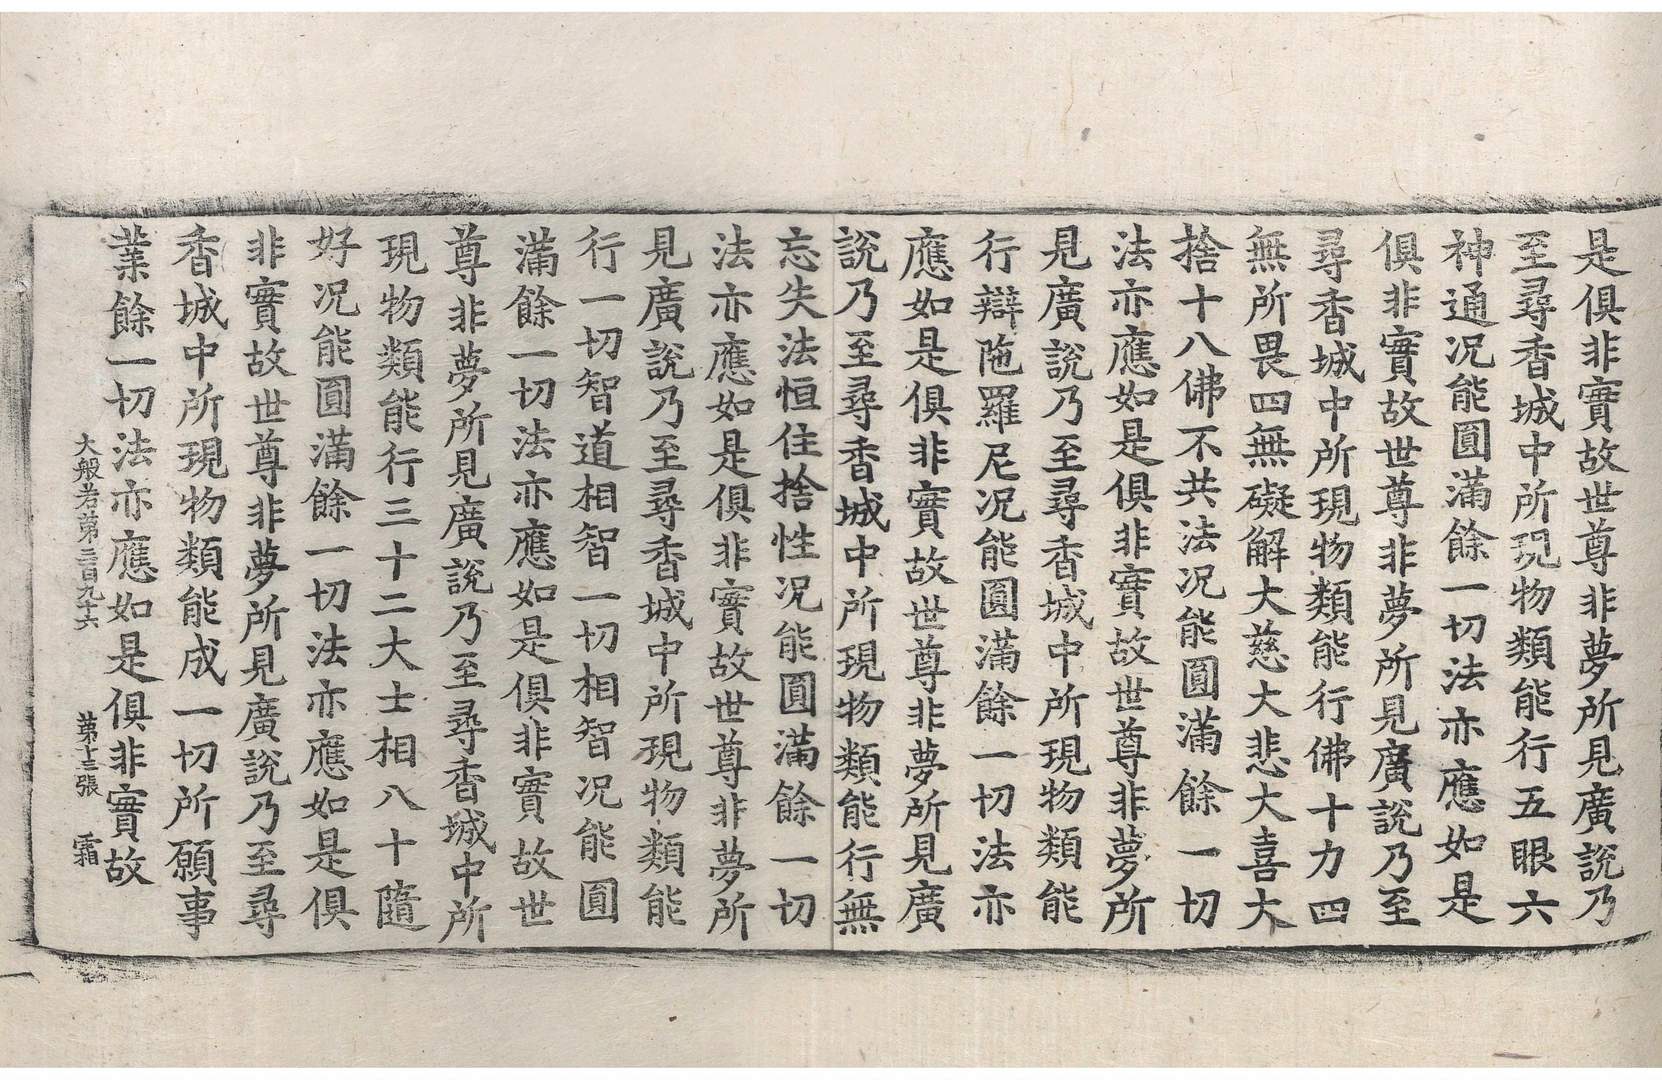 是俱非實故世尊非夢所見廣說乃
至尋香城中所現物類能行五眼六
神通況能圓滿餘一切法亦應如是
俱非實故世尊非夢所見廣說乃至
尋香城中所現物類能行佛十力四
無所畏四無礙解大慈大悲大喜大
捨十八佛不共法況能圓滿餘一切
法亦應如是俱非實故世尊非夢所
見廣說乃至尋香城中所現物類能
行辯陁羅尼況能圓滿餘一切法亦
應如是俱非實故世尊非夢所見廣
說乃至尋香城中所現物類能行無
忘失法恒住捨性況能圓滿餘一切
法亦應如是俱非實故世尊非夢所
見廣說乃至尋香城中所現物類能
行一切智道相智一切相智況能圓
滿餘一切法亦應如是俱非實故世
尊非夢所見廣說乃至尋香城中所
現物類能行三十二大士相八十隨
好況能圓滿餘一切法亦應如是俱
非實故世尊非夢所見廣說乃至尋
香城中所現物類能成一切所願事
業餘一切法亦應如是俱非實故
大般若第三百九十六 第十三張 霜